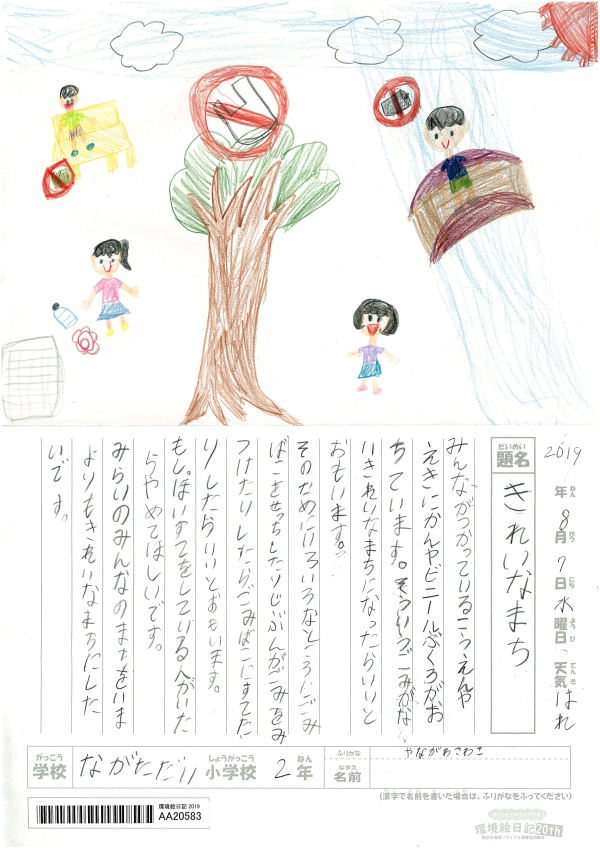 2019年8月7日水曜日 天気はれ
ねん がつ にち ようび てんき
だいめい
題名
きれいなまち
みんながつかっているこうえんや
えきにかんやビニールぶくろがお
ちています。そういうごみがな
いきれいなまちになったらいいと
おもいます。
そのためにいろいろなところにごみ
ばこをせっちしたりじぶんがごみをみ
つけたりしたらごみばこにすてた
りしたらいいとおもいます。
もし、ぽいすてをしている人がいた
らやめてほしいです。
みらいのみんなのまちをいま
よりもきれいなまちにした
いです。
がっこう
学校
ながただい
しょうがっこう
小学校
2
ねん
年
ふりがな
やながわさわき
なまえ
名前
(漢字で名前を書いた場合は、ふりがなをふってください)
環境絵日記 2019
AA20583
環境絵日記 20th